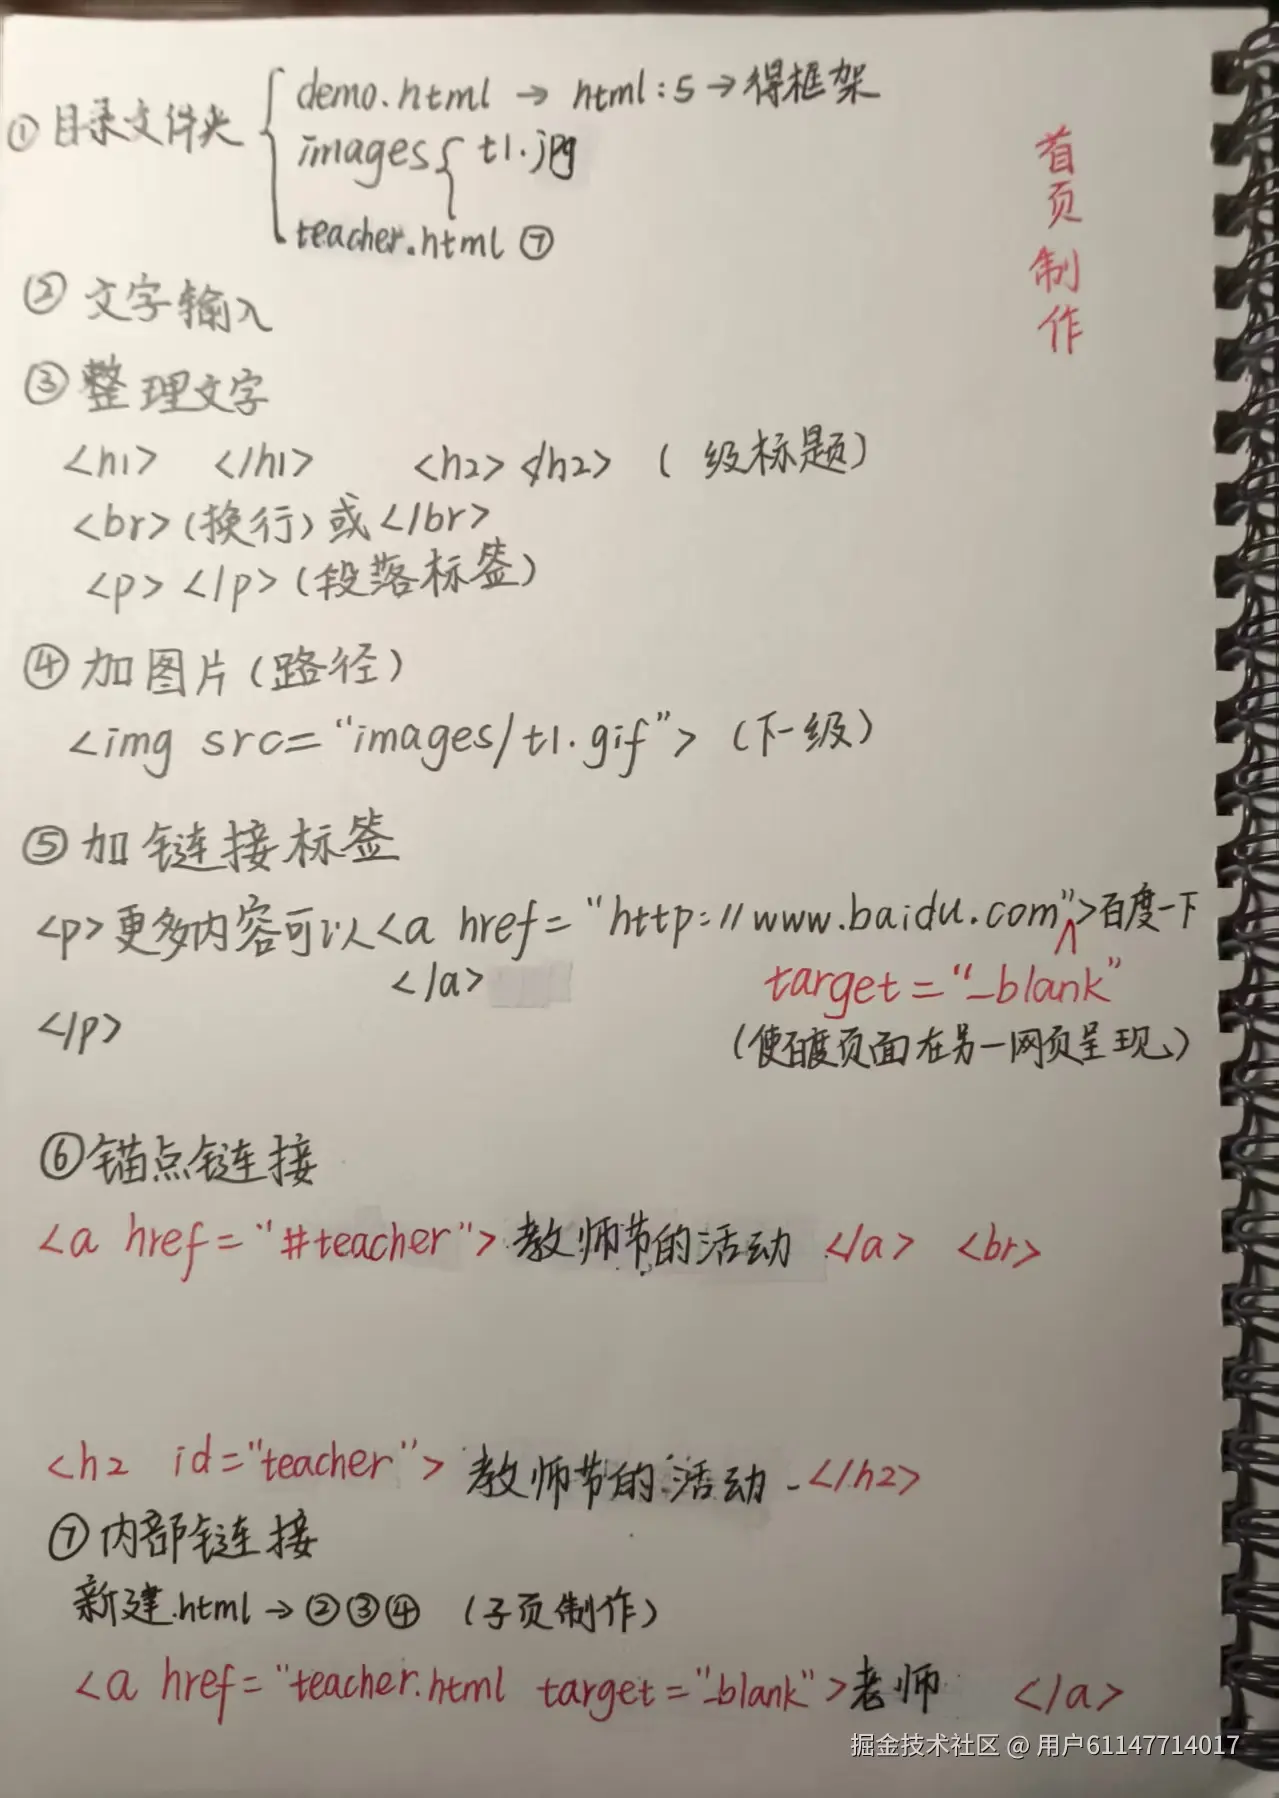 首页制作
① 目录文件夹 { demo.html → html:5 → 得框架
images { t1.jpg
teacher.html ⑦
② 文字输入
③ 整理文字
<h1> </h1> <h2> </h2> ( 级标题)
<br>(换行)或</br>
<p> </p>(段落标签)
④ 加图片(路径)
<img src="images/t1.gif"> (下一级)
⑤ 加链接标签
<p>更多内容可以<a href="http://www.baidu.com">百度一下
</a> target="_blank"
</p> (使百度页面在另一网页呈现)
⑥ 锚点链接
<a href="#teacher">教师节的活动 </a> <br>
<h2 id="teacher"> 教师节的活动 </h2>
⑦ 内部链接
新建.html → ②③④ (子页制作)
<a href="teacher.html target="_blank">老师 </a>
掘金技术社区 @ 用户61147714017